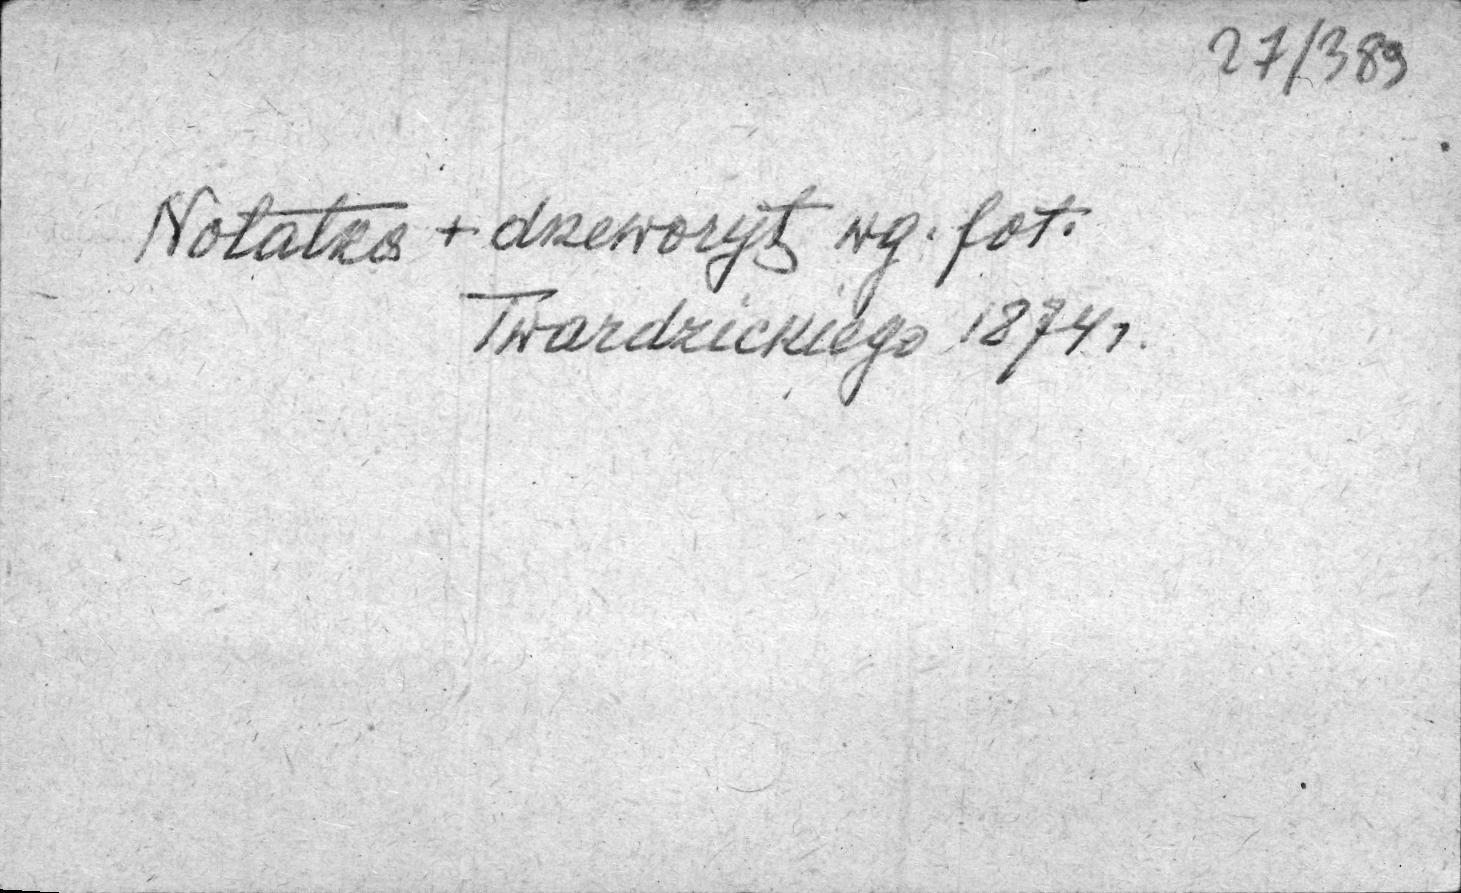 27/389
Notatka + drzeworyt wg. fot.
Twardzickiego 1874 r.